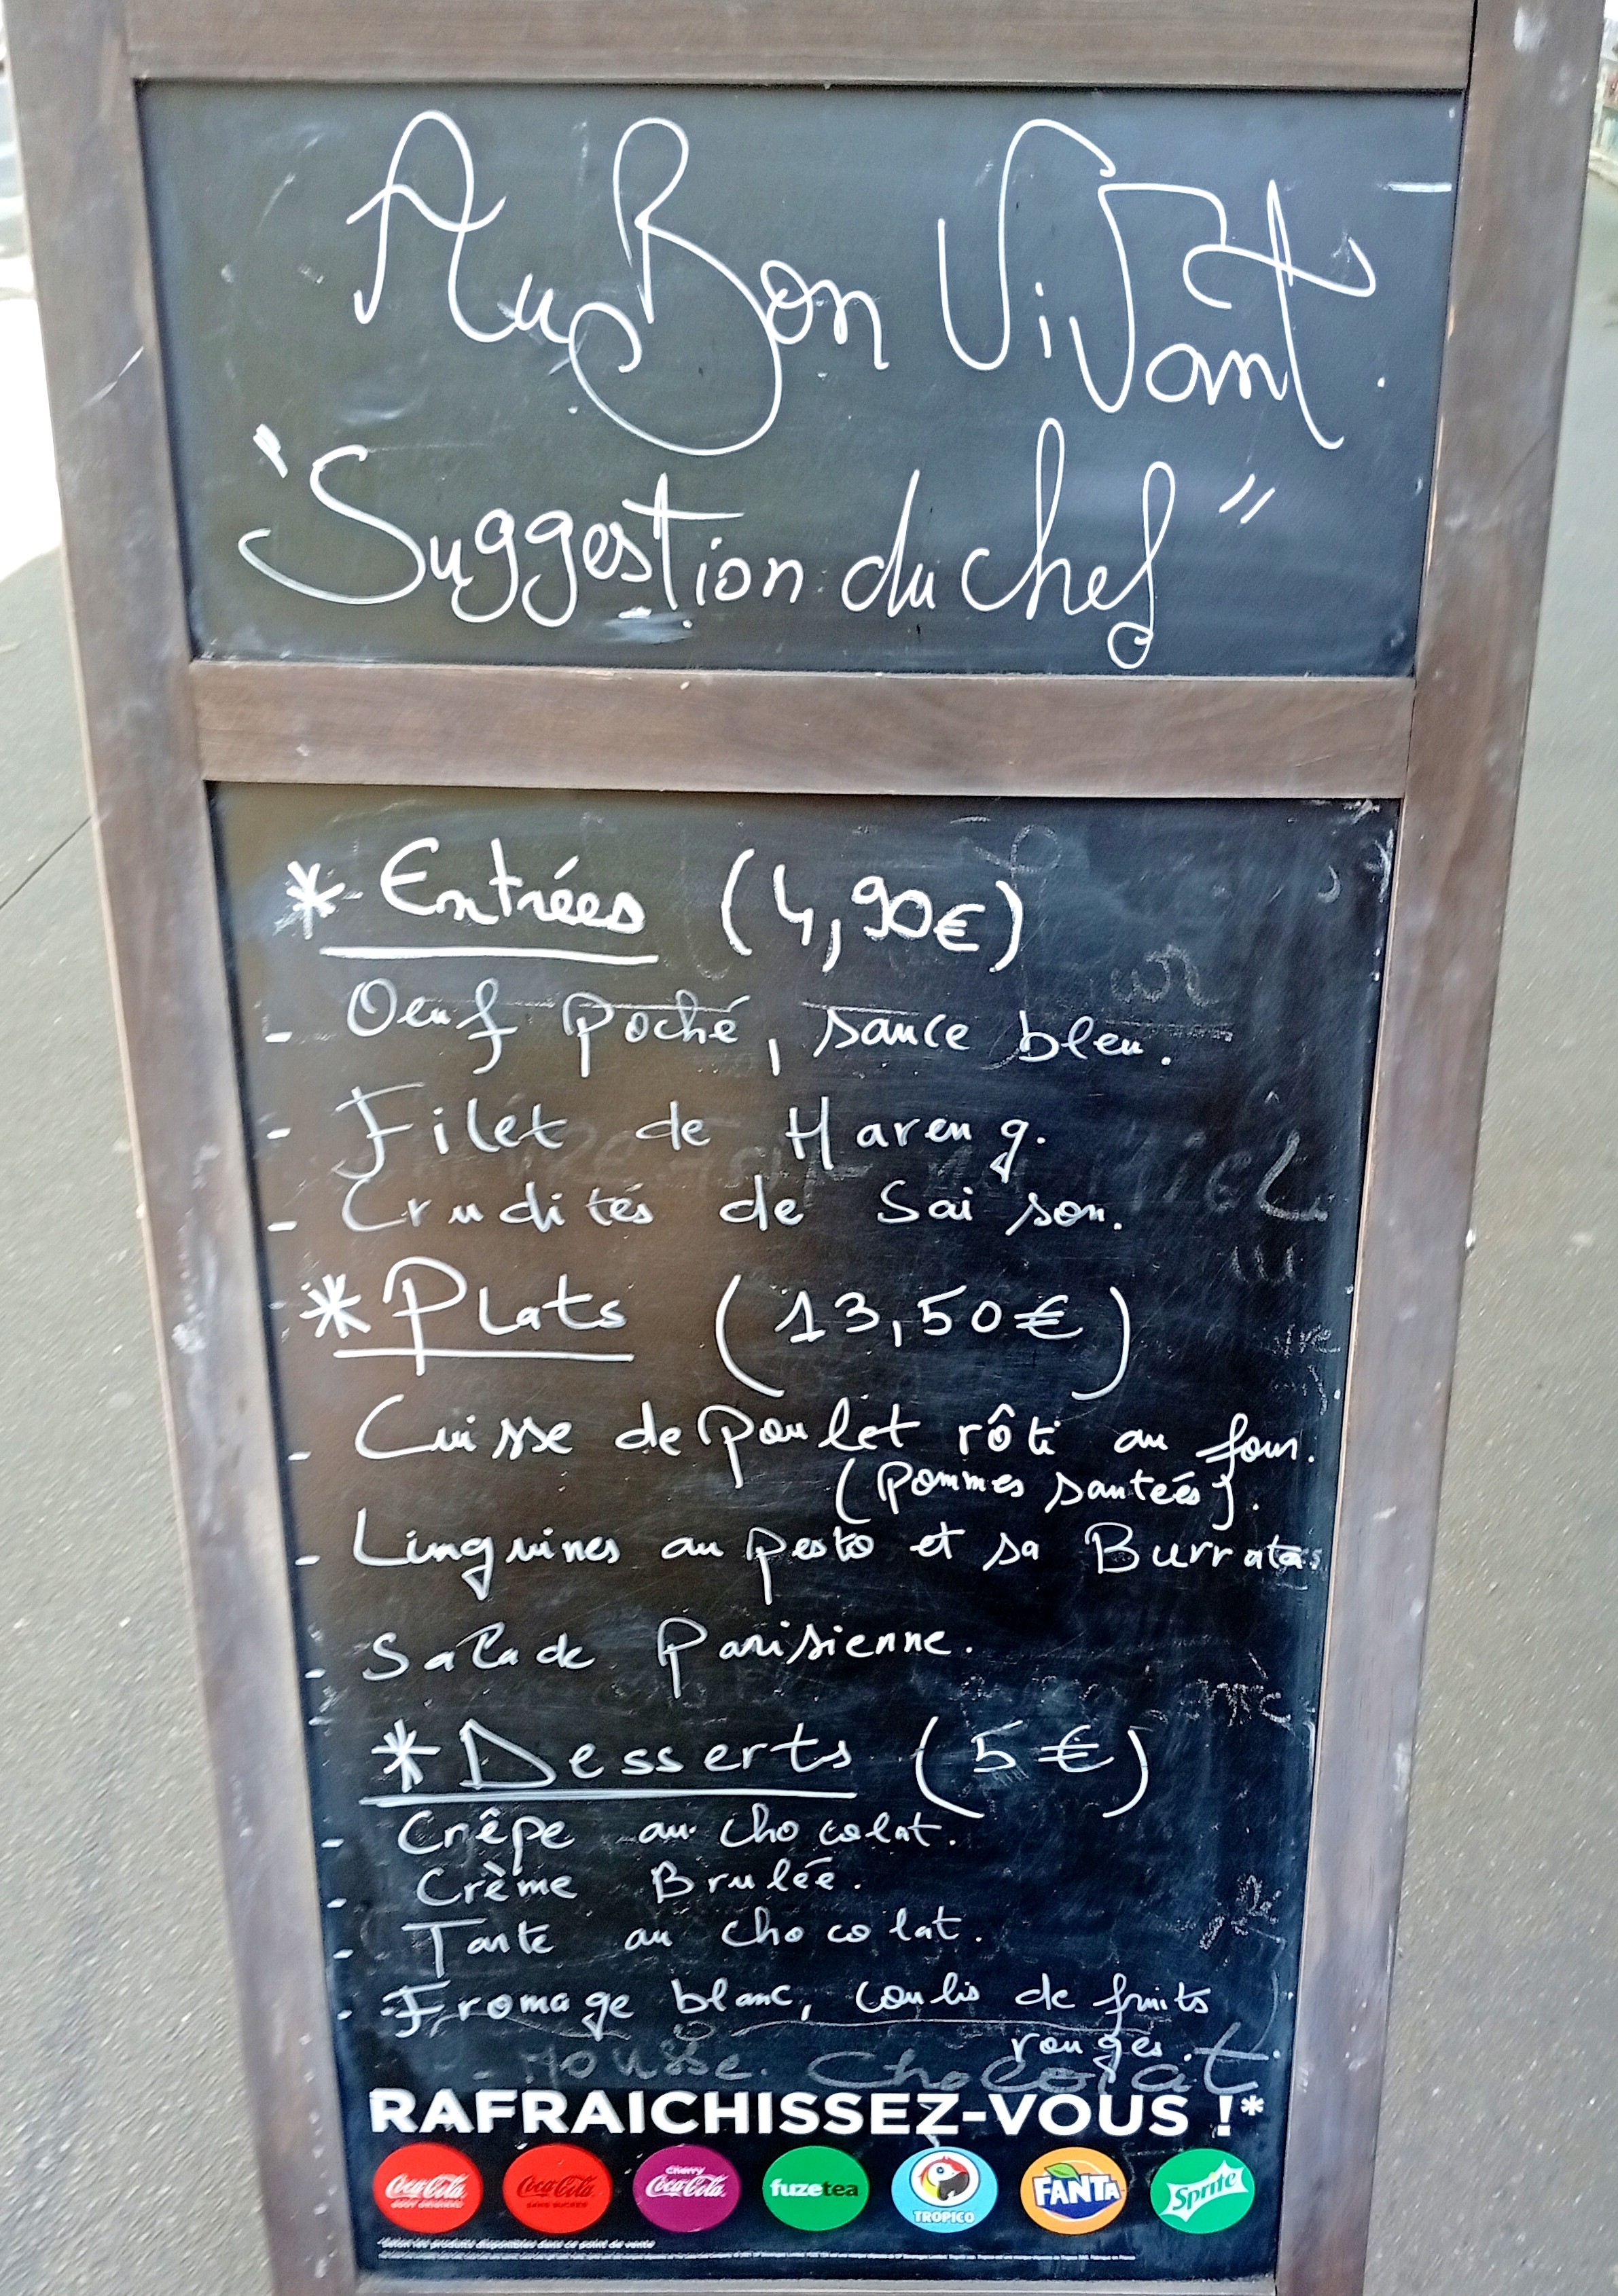 Au Bon Vivant.
"Suggestion du chef"
* Entrées (4,90€)
- Oeuf poché, sauce bleu.
- Filet de Hareng.
- Crudités de Saison.
* Plats (13,50€)
- Cuisse de poulet rôti au four.
(pommes sautées).
- Linguines au pesto et sa Burrata.
- Salade Parisienne.
* Desserts (5€)
- Crêpe au chocolat.
- Crème Brulée.
- Tarte au chocolat.
- Fromage blanc, coulis de fruits
rouges.
- Mousse. Chocolat
RAFRAICHISSEZ-VOUS !*
Coca-Cola GOÛT ORIGINAL Coca-Cola SANS SUCRES Cherry Coca-Cola fuzetea TROPICO FANTA Sprite
*Selon les produits disponibles dans ce point de vente